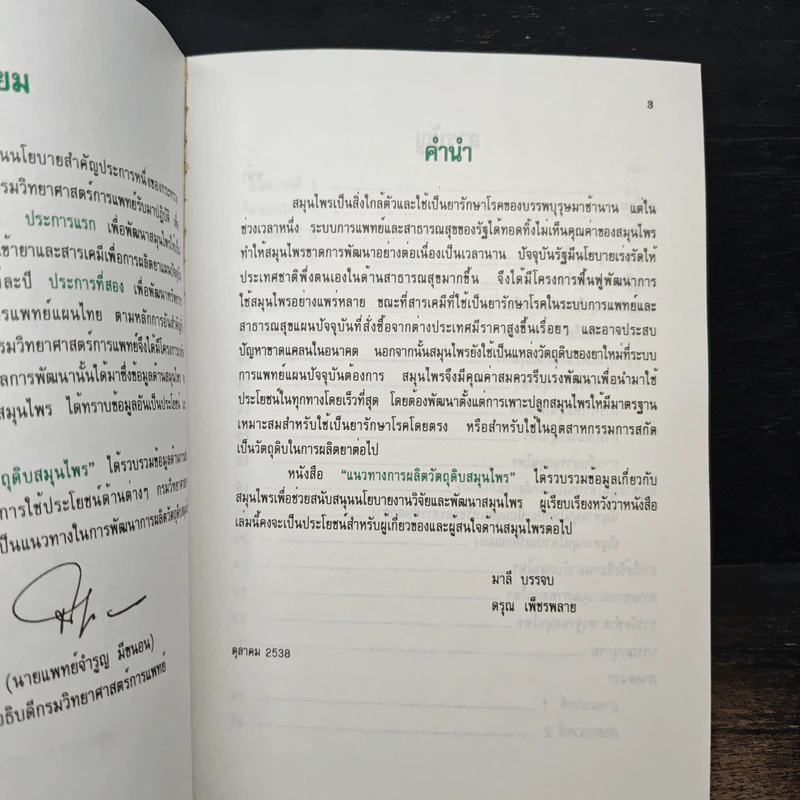 ยม
นนโยบายสำคัญประการหนึ่งของกระทรวง
กรมวิทยาศาสตร์การแพทย์รับมาปฏิบัติ
ประการแรก เพื่อพัฒนาสมุนไพร
เข้ายาและสารเคมีเพื่อการผลิตยา
ต่ละปี ประการที่สอง เพื่อพัฒนา
ารแพทย์แผนไทย ตามหลักการ
กรมวิทยาศาสตร์การแพทย์จึงได้มีโครงการ
ลการพัฒนานั้นได้มาซึ่งข้อมูลด้านสมุนไพร
สมุนไพร ได้ทราบข้อมูลอันเป็นประโยชน์
ถุดิบสมุนไพร” ได้รวบรวมข้อมูลด้าน
การใช้ประโยชน์ด้านต่างๆ กรมวิทยาศา
เป็นแนวทางในการพัฒนาการผลิตวัตถุดิบสมุน
(นายแพทย์จำรูญ มีขนอน)
อธิบดีกรมวิทยาศาสตร์การแพทย์
3
คำนำ
สมุนไพรเป็นสิ่งใกล้ตัวและใช้เป็นยารักษาโรคของบรรพบุรุษมาช้านาน แต่ใน
ช่วงเวลาหนึ่ง ระบบการแพทย์และสาธารณสุขของรัฐได้ทอดทิ้งไม่เห็นคุณค่าของสมุนไพร
ทำให้สมุนไพรขาดการพัฒนาอย่างต่อเนื่องเป็นเวลานาน ปัจจุบันรัฐมีนโยบายเร่งรัดให้
ประเทศชาติพึ่งตนเองในด้านสาธารณสุขมากขึ้น จึงได้มีโครงการฟื้นฟูพัฒนาการ
ใช้สมุนไพรอย่างแพร่หลาย ขณะที่สารเคมีที่ใช้เป็นยารักษาโรคในระบบการแพทย์และ
สาธารณสุขแผนปัจจุบันที่สั่งซื้อจากต่างประเทศมีราคาสูงขึ้นเรื่อยๆ และอาจประสบ
ปัญหาขาดแคลนในอนาคต นอกจากนั้นสมุนไพรยังใช้เป็นแหล่งวัตถุดิบของยาใหม่ที่ระบบ
การแพทย์แผนปัจจุบันต้องการ สมุนไพรจึงมีคุณค่าสมควรรีบเร่งพัฒนาเพื่อนำมาใช้
ประโยชน์ในทุกทางโดยเร็วที่สุด โดยต้องพัฒนาตั้งแต่การเพาะปลูกสมุนไพรให้มีมาตรฐาน
เหมาะสมสำหรับใช้เป็นยารักษาโรคโดยตรง หรือสำหรับใช้ในอุตสาหกรรมการสกัด
เป็นวัตถุดิบในการผลิตยาต่อไป
หนังสือ “แนวทางการผลิตวัตถุดิบสมุนไพร” ได้รวบรวมข้อมูลเกี่ยวกับ
สมุนไพรเพื่อช่วยสนับสนุนนโยบายงานวิจัยและพัฒนาสมุนไพร ผู้เรียบเรียงหวังว่าหนังสือ
เล่มนี้คงจะเป็นประโยชน์สำหรับผู้เกี่ยวข้องและผู้สนใจด้านสมุนไพรต่อไป
มาลี บรรจบ
ดรุณ เพ็ชรพลาย
ตุลาคม 2538